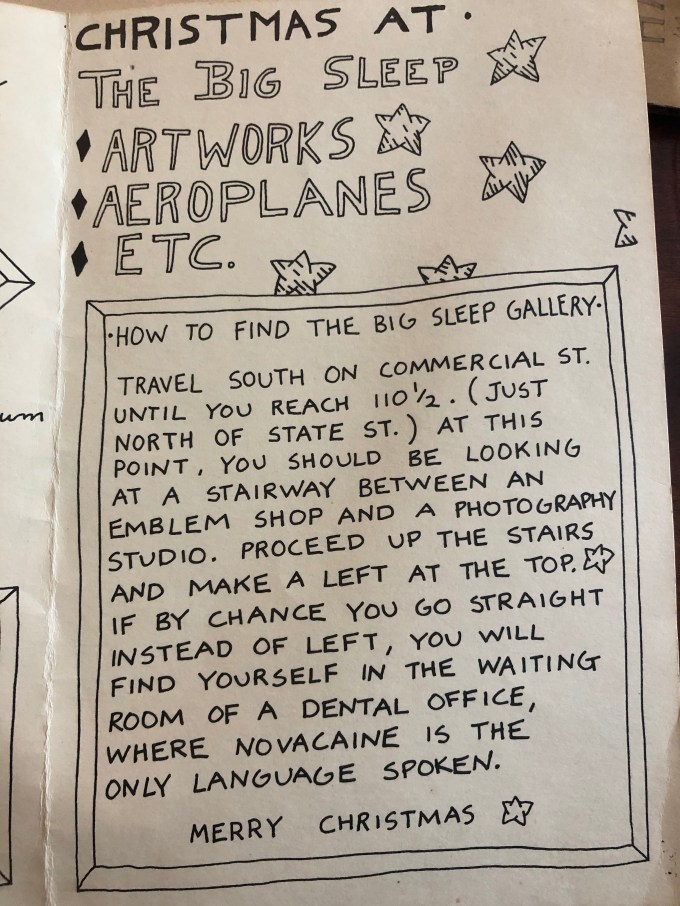 CHRISTMAS AT.
THE BIG SLEEP
♦ ARTWORKS
♦ AEROPLANES
♦ ETC.
•HOW TO FIND THE BIG SLEEP GALLERY•
TRAVEL SOUTH ON COMMERCIAL ST.
UNTIL YOU REACH 110½. (JUST
NORTH OF STATE ST.) AT THIS
POINT, YOU SHOULD BE LOOKING
AT A STAIRWAY BETWEEN AN
EMBLEM SHOP AND A PHOTOGRAPHY
STUDIO. PROCEED UP THE STAIRS
AND MAKE A LEFT AT THE TOP.
IF BY CHANCE YOU GO STRAIGHT
INSTEAD OF LEFT, YOU WILL
FIND YOURSELF IN THE WAITING
ROOM OF A DENTAL OFFICE,
WHERE NOVACAINE IS THE
ONLY LANGUAGE SPOKEN.
MERRY CHRISTMAS